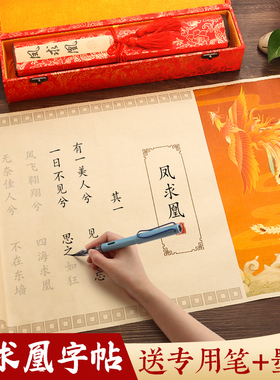 凤求凰
凤求凰
其一
有一美人兮
见
一日不见兮
思之如狂
凤飞翱翔兮
四海求凰
无奈佳人兮
不在东墙
求凰字帖 送专用笔+